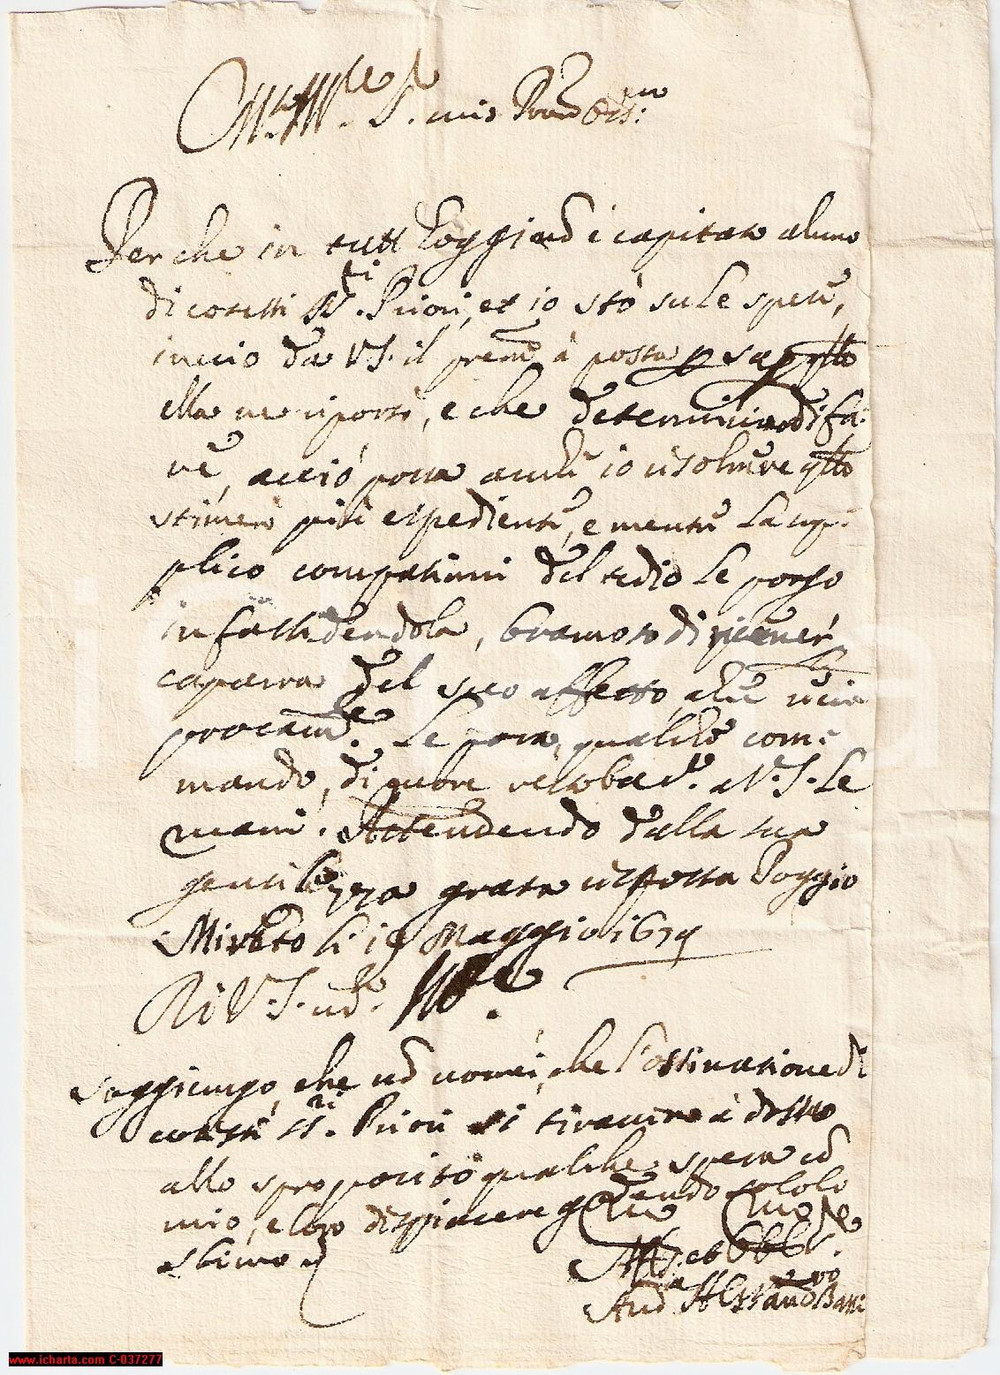 Molto Ill.re S. mio Pron Oss.mo
Per che in tutt hoggi no è capitato alcuno
di cotesti SS.ri Priori, et io stò su le spese,
invio da VS. il pnte à posta p saper qto
ella ne riporti, e che determinino di fa:
re, acciò possa anch io risolvere qto
stimerò più espediente, e mentre la sup:
plico compatirmi del tedio le porgo
infastidendola, bramoso di ricever
caparra del suo affetto, che reci
procam.te le porto, qualche com:
mando, di cuore riverba V.S. le
mani. Attendendo dalla sua
gentilezza grata risposta Poggio
Mirteto li 19 Maggio 1679
Di V.S. M.to Ill.re
Soggiungo, che no vorrei, che l'ostinatione di
cotesti SS.ri Priori si tirassero à dosso
allo sproposito qualche spesa co
mio, e loro dispiacere
stimo
Aff. et Obb
And Alessandro Bassi
www.icharta.com C-037277